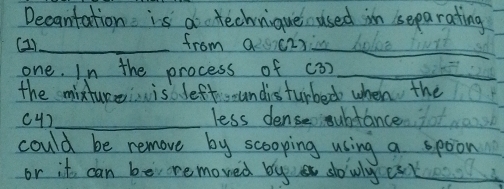 Decantation is a technique used in separating
(1)__________ from a (2)__________
one. In the process of (3)__________
the mixture is left undisturbed when the
(4)__________ less dense subtance
could be remove by scooping using a spoon
or it can be removed by slowly (5)__________